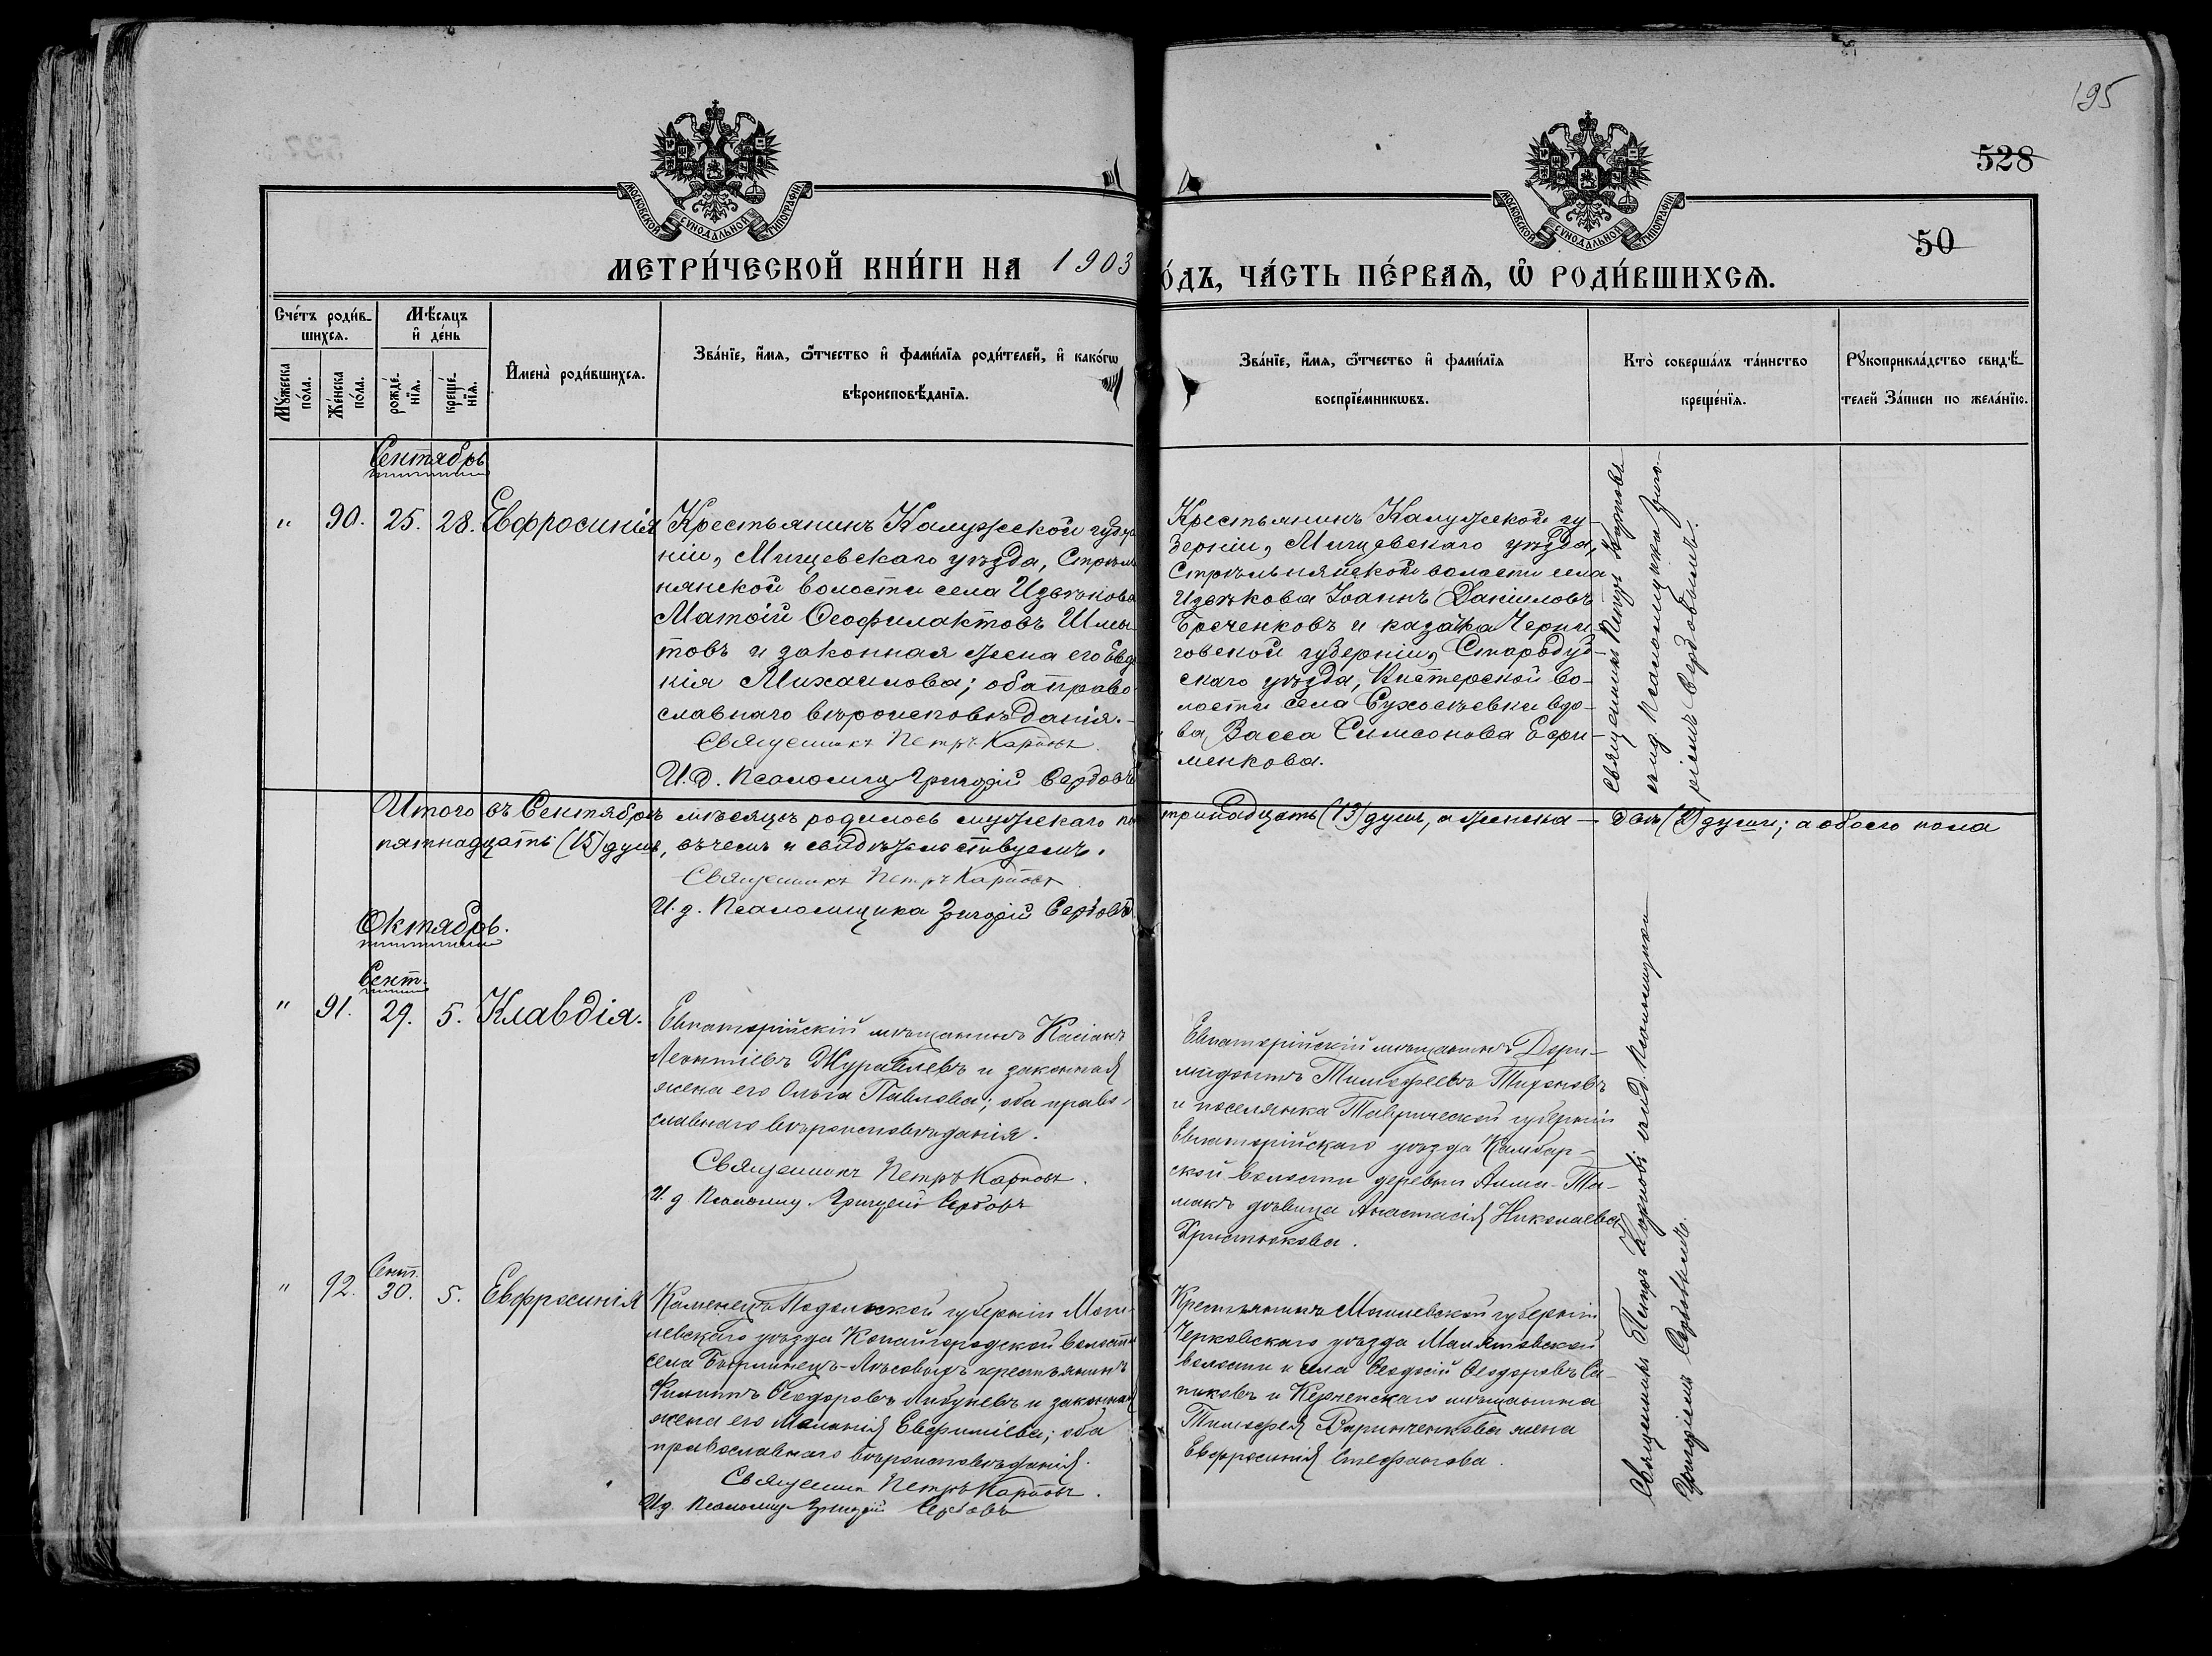 195
528
50
МОСКОВСКОЙ СУНОДАЛЬНОЙ ТИПОГРАФІИ
МОСКОВСКОЙ СУНОДАЛЬНОЙ ТИПОГРАФІИ
МЕТРИ́ЧЕСКОЙ КНИ́ГИ НА 1903
О́ДЪ, ЧА́СТЬ ПЕ́РВАѦ, Ѡ҆ РОДИ́ВШИХСѦ.
Сче́тъ роди́в-
шихсѧ.
Мꙋ́жеска по́ла.
Же́нска по́ла.
Мѣ́сѧцъ
и҆ де́нь
рожде́-
нїѧ.
креще́-
нїѧ.
И҆мена̀ роди́вшихсѧ.
Зва́нїе, и҆́мѧ, ѻ҆́тчество и҆ фами́лїѧ роди́телей, и҆ како́гѡ
вѣроисповѣ́данїѧ.
Зва́нїе, и҆́мѧ, ѻ҆́тчество и҆ фами́лїѧ
воспрїе́мникѡвъ.
Кто̀ соверша́лъ та́инство
креще́нїѧ.
Рꙋкоприкла́дство свидѣ́-
телей за́писи по жела́нїю.
Сентябрь
" 90. 25. 28. Евфросинія
Крестьянинъ Калужской губер
ніи, Мищевскаго уѣзда, Стрѣль
нянской волости села Извѣкова
Матѳій Ѳеофилактовъ Шмы-
товъ и законная жена его Евдо
кія Михаилова; оба право-
славнаго вѣроисповѣданія.
Священникъ Петръ Карповъ.
И.д. Псаломщ. Григорій Сербовъ
Крестьянинъ Калужской гу-
берніи, Мищевскаго уѣзда,
Стрѣльнянской волости села
Извѣкова Іоаннъ Даніиловъ
и казачка Черни-
говской губерніи, Стародуб-
скаго уѣзда, Кистерской во-
лости села вдо-
ва, Васса Симсонова Ефи-
менкова.
Священникъ Петръ Карповъ
съ и.д. Псаломщика Григо-
ріемъ Сербовымъ.
Итого въ Сентябрѣ мѣсяцѣ родилось мужскаго по тринадцать (13) душъ, а женска — двѣ (2) души; а обоего пола
пятнадцать (15) душъ, въ чемъ и свидѣтельствуемъ.
Священникъ Петръ Карповъ
И.д. Псаломщика Григорій Сербовъ
Октябрь.
Сент.
" 91. 29. 5. Клавдія.
Евпаторійскій мѣщанинъ Касіанъ
Леонтіевъ Журавлевъ и законная
жена его Ольга Павлова; оба право-
славнаго вѣроисповѣданія.
Священникъ Петръ Карповъ.
И.д. Псаломщ. Григорій Сербовъ
Евпаторійскій мѣщанинъ Дори-
мидонтъ Тимофеевъ Тихоновъ
и поселянка Таврической губерніи
Евпаторійскаго уѣзда Камбар-
ской волости деревни Алма-Та-
макъ дѣвица Анастасія Николаева
Христюкова.
Священникъ Петръ Карповъ съ и.д. Псаломщика
Григоріемъ Сербовымъ.
Сент.
" 92. 30. 5. Евфросинія
Каменецъ-Подольской губерніи Моги-
левскаго уѣзда Копайгородской волости
села крестьянинъ
Филиппъ Ѳеодоровъ и законная
жена его Меланія Евфиміева; оба
православнаго вѣроисповѣданія.
Священникъ Петръ Карповъ.
И.д. Псаломщ. Григорій Сербовъ
Крестьянинъ Могилевской губерніи
уѣзда Малятовской
волости и села Ѳеодосій Ѳеодоровъ Са-
пиковъ и Керченскаго мѣщанина
Тимофея жена
Евфросинія Стефанова.